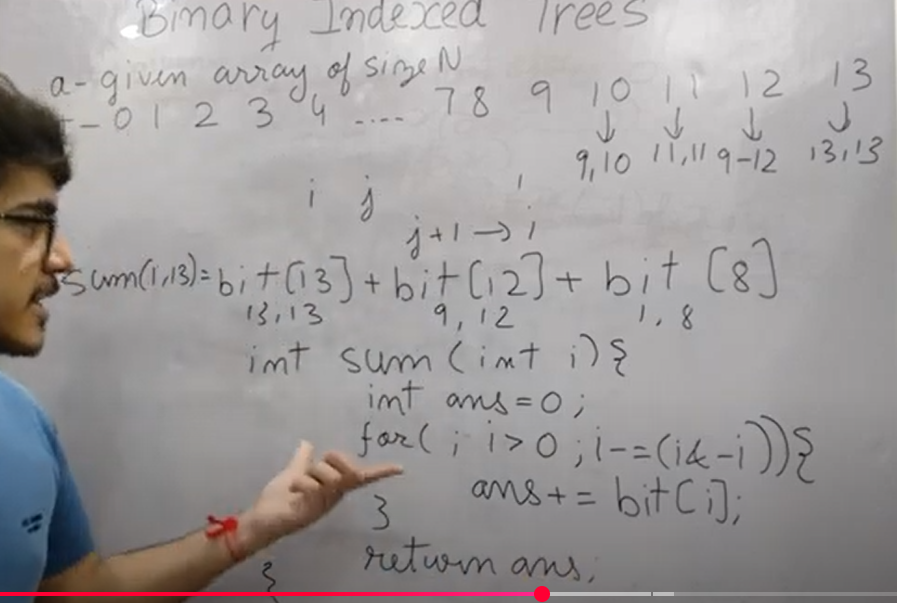 Binary Indexed Trees
a - given array of size N
- 0 1 2 3 4 .... 7 8 9 10 11 12 13
↓ ↓ ↓ ↓
9,10 11,11 9-12 13,13
i j
j+1 → i
sum(1,13)= bit[13] + bit[12] + bit [8]
13,13 9, 12 1, 8
int sum (int i){
int ans=0;
for( ; i>0 ; i-=(i&-i)){
ans+= bit[i];
}
return ans;
}